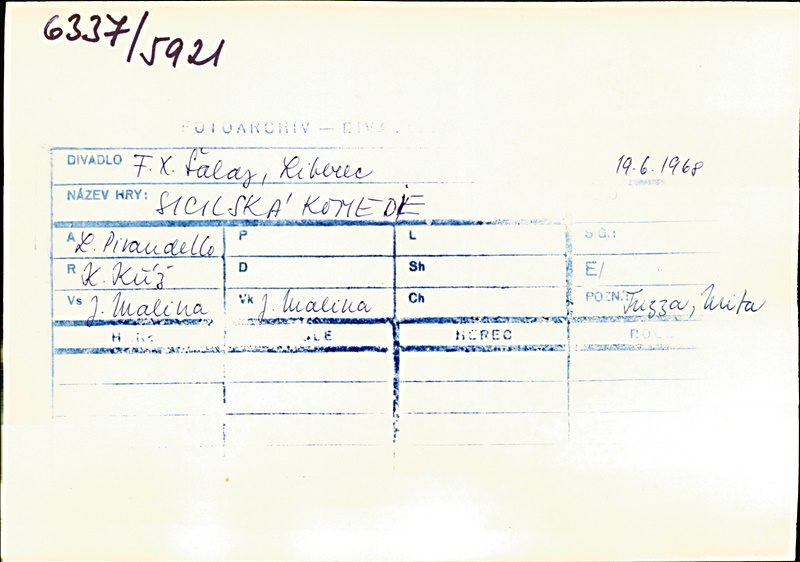 6337/5921
FOTOARCHIV — DIVA
DIVADLO F. X. Šaldy, Liberec 19.6.1968
NÁZEV HRY: SICILSKÁ KOMEDIE
A L. Pirandello P L SIG.:
R K. Kříž D Sh E/
Vs J. Malina Vk J. Malina Ch POZN. Tuzza, Mita
HEREC